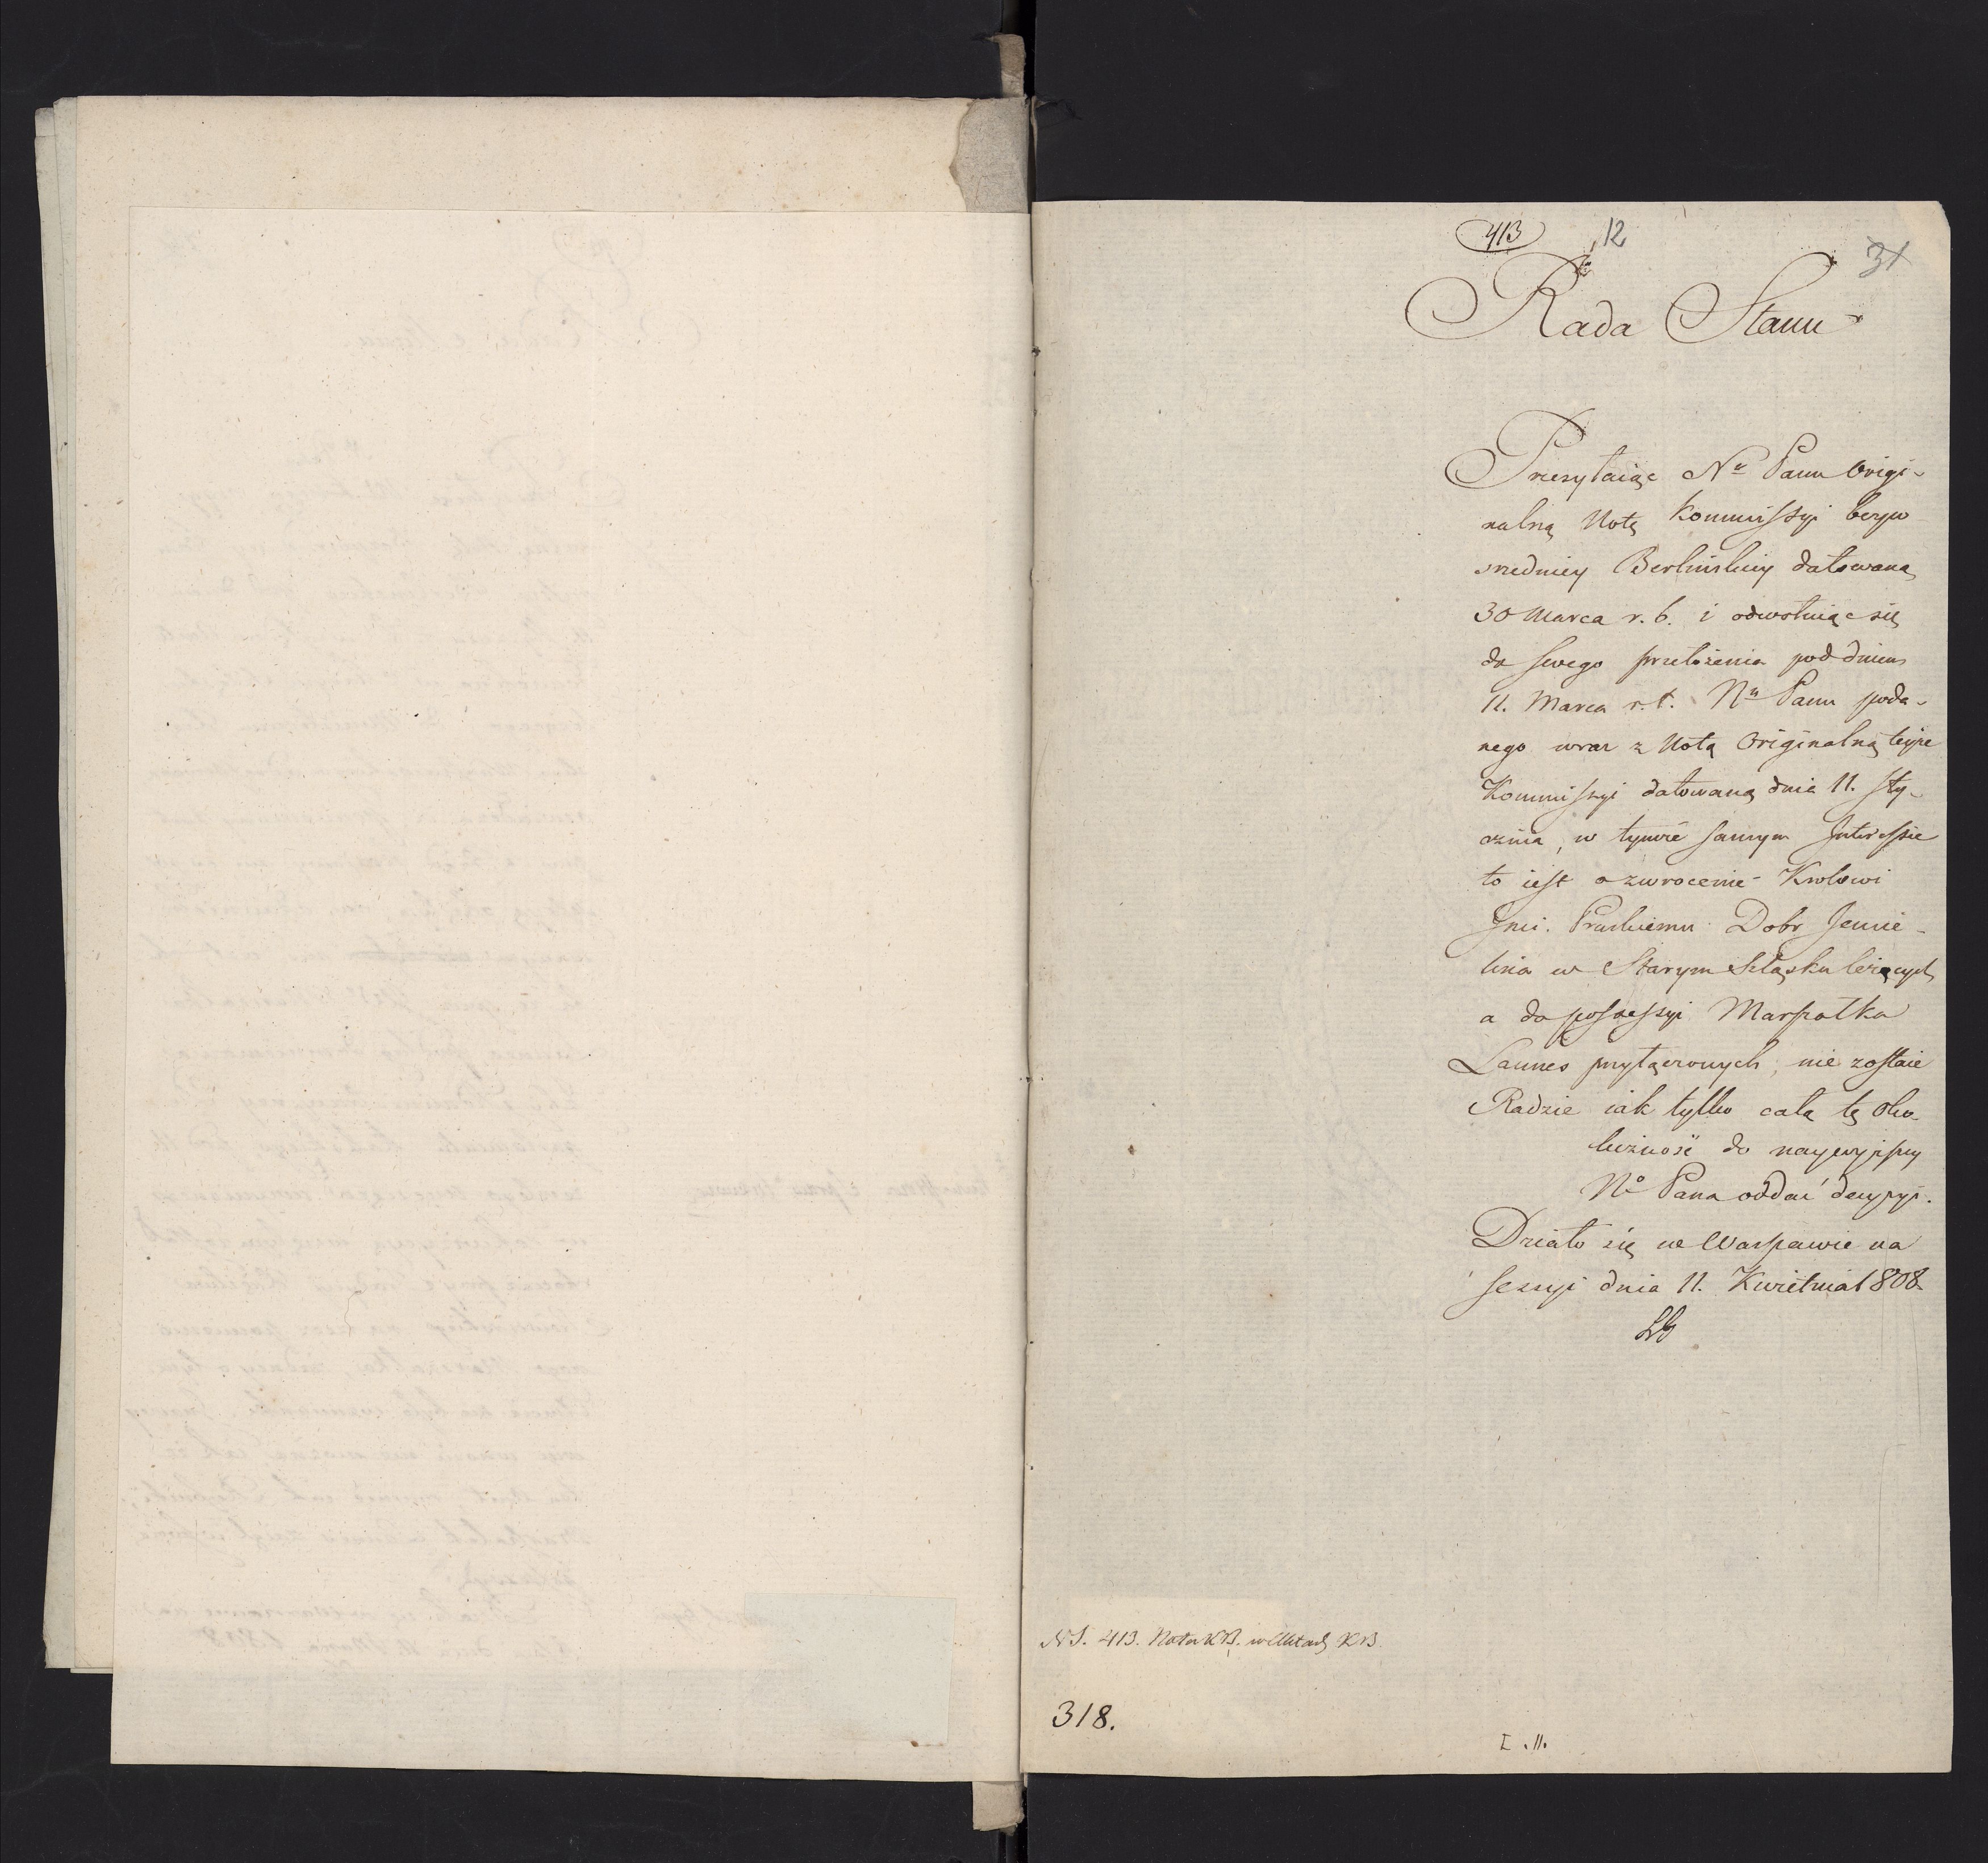 413 12
31
Rada Stanu
Przesyłaiąc Nu Panu Origi-
nalną Notę Kommissyi bezpo
sredniey Berlinskiey datowaną
30 Marca r. b. i odwołuiąc się
do swego przełożenia pod dniem
11. Marca r. t. Nu Panu poda-
nego wraz z Notą Originalną teyże
Kommissyi datowaną dnia 11. Sty-
cznia, w tymże samym Interessie
to iest o zwrocenie Krolowi
Jmci. Pruskiemu Dobr Jemie-
lnia w Starym Szląsku leżących
a do possessyi Marszałka
Lannes przyłączonych, nie zostaie
Radzie iak tylko całą tę oko-
liczność do naywyższey
No Pana oddać decyzyi.
Działo się w Warszawie na
sessyi dnia 11. Kwietnia 1808
NS. 413. Nota KB. w Aktach KB.
318.
I . II.